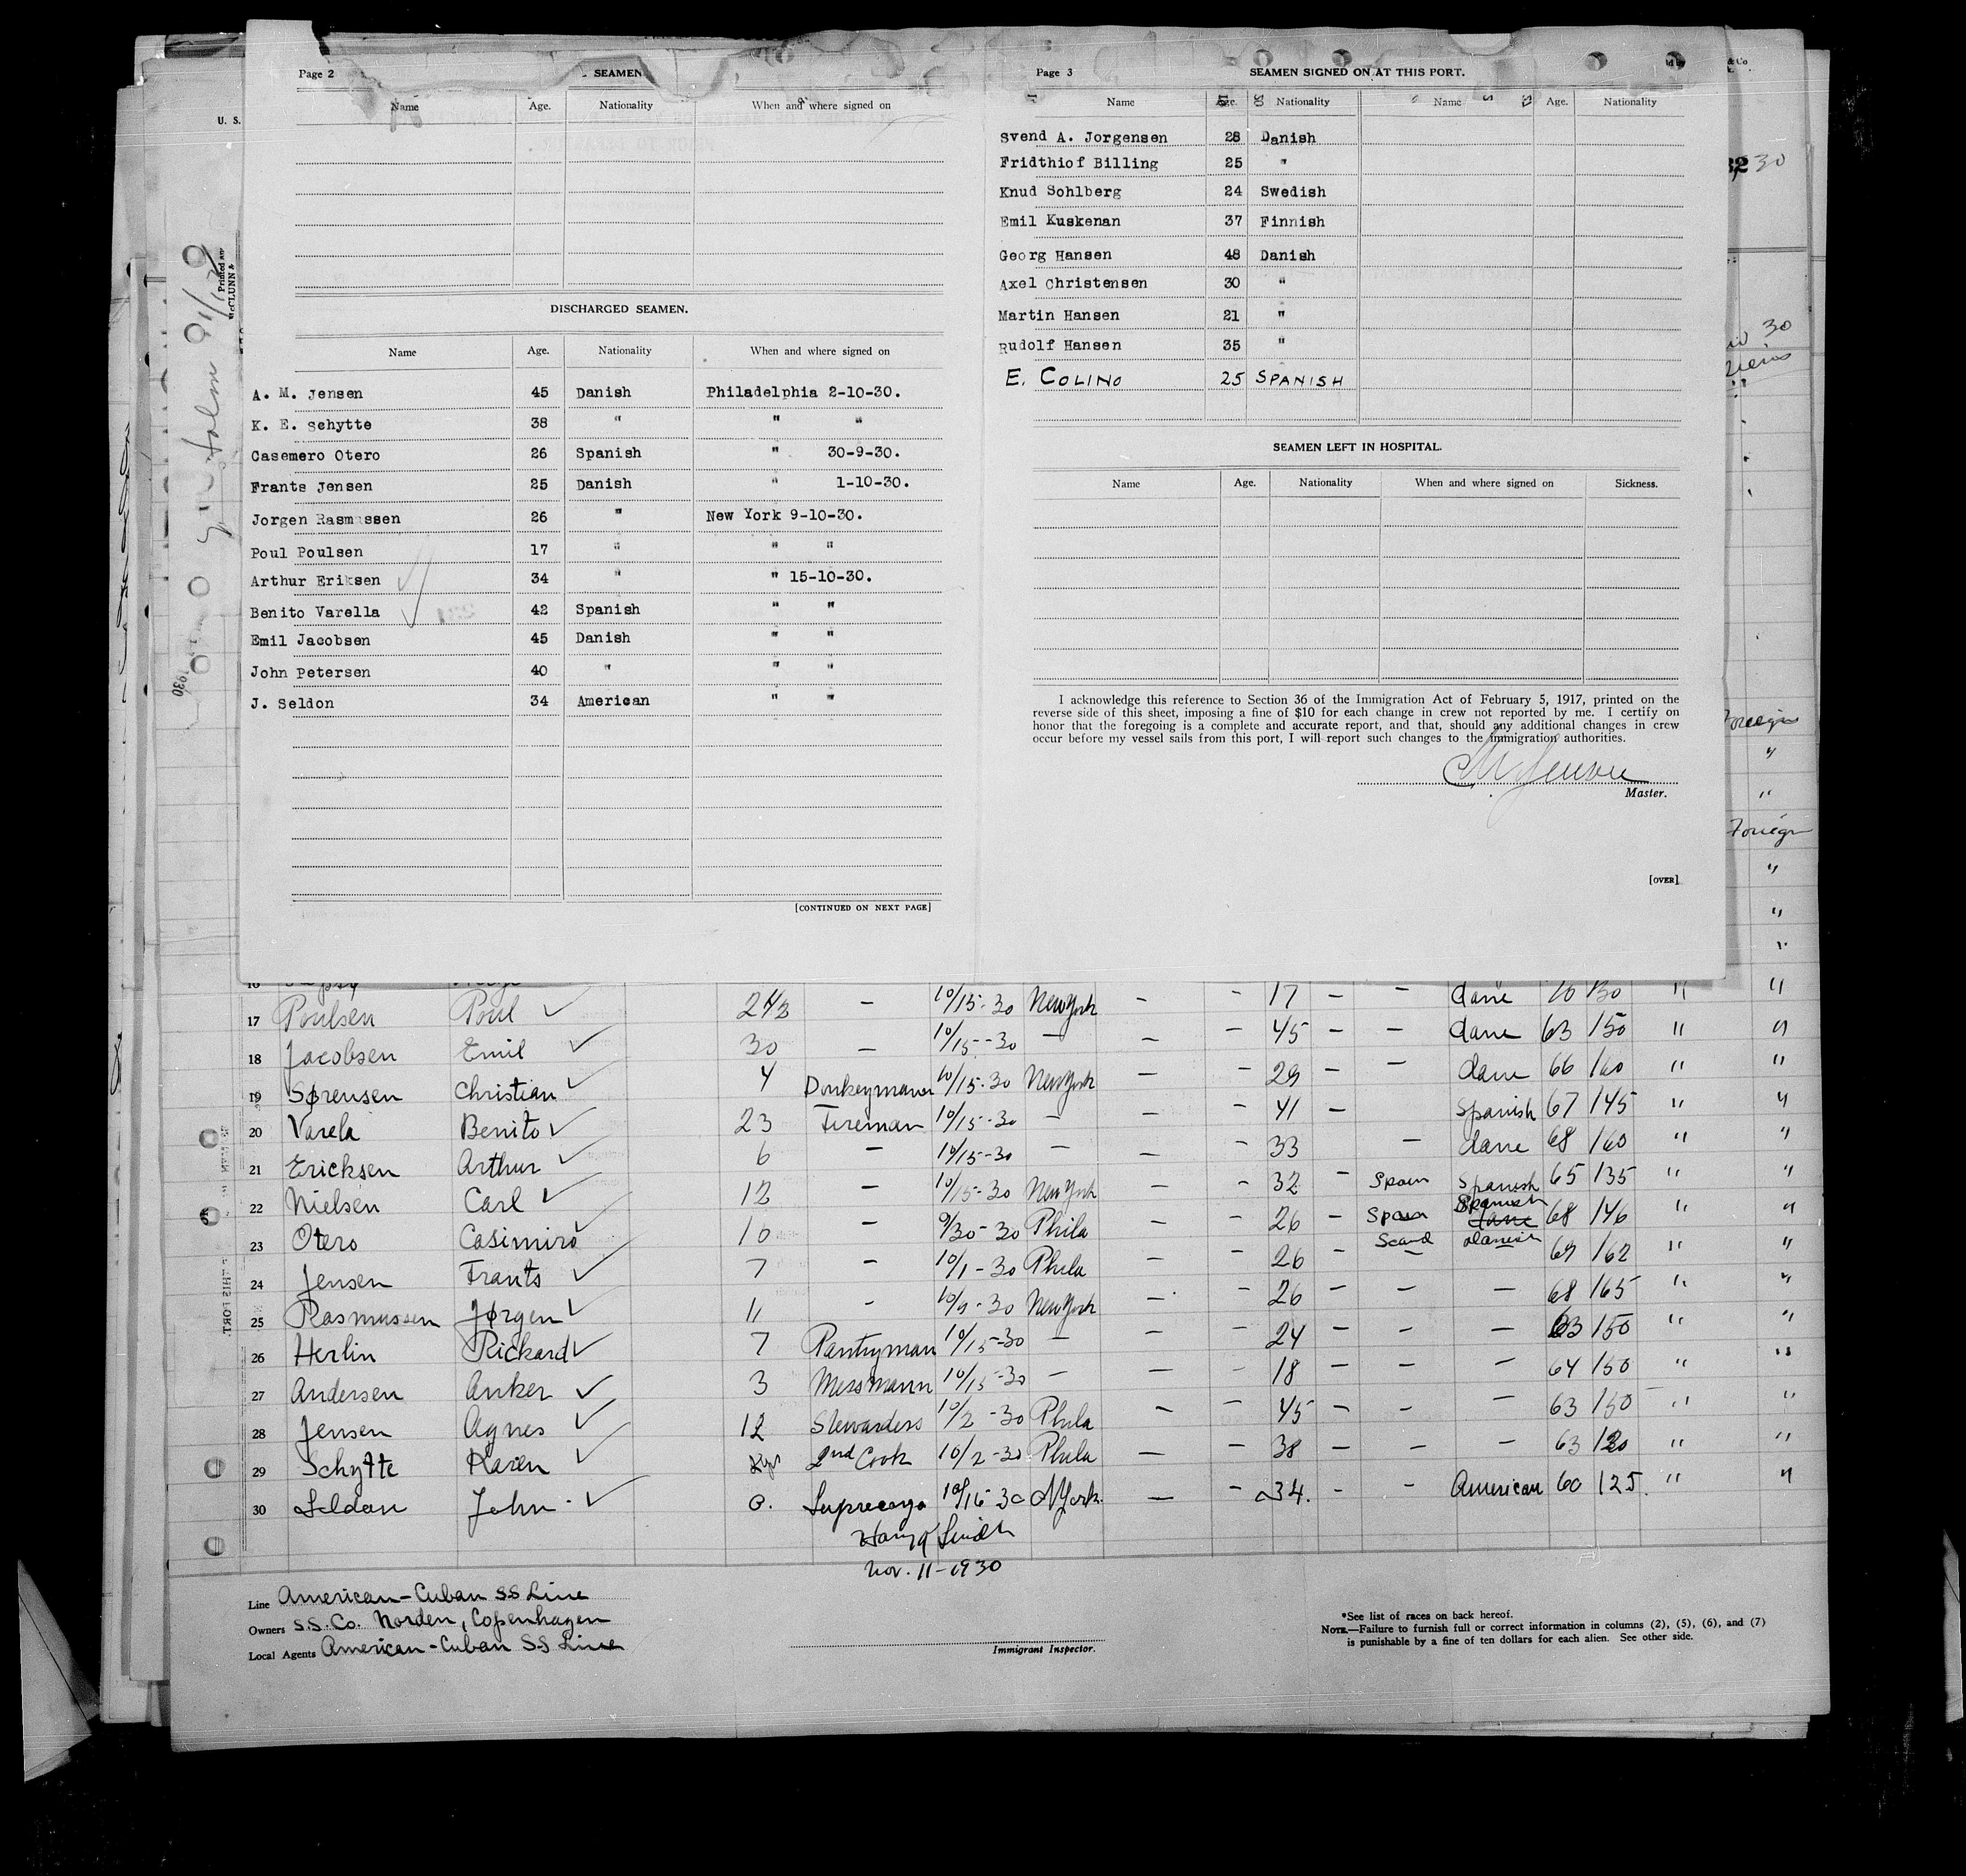 Page 2 SEAMEN
Name Age. Nationality When and where signed on
DISCHARGED SEAMEN.
Name Age. Nationality When and where signed on
A. M. Jensen 45 Danish Philadelphia 2-10-30.
K. E. Schytte 38 " " "
Casemero Otero 26 Spanish " 30-9-30.
Frants Jensen 25 Danish " 1-10-30.
Jorgen Rasmussen 26 " New York 9-10-30.
Poul Poulsen 17 " " "
Arthur Eriksen 34 " " 15-10-30.
Benito Varella 42 Spanish " "
Emil Jacobsen 45 Danish " "
John Petersen 40 " " "
J. Seldon 34 American " "
[CONTINUED ON NEXT PAGE]
Page 3 SEAMEN SIGNED ON AT THIS PORT.
Name Age. Nationality Name Age. Nationality
Svend A. Jorgensen 28 Danish
Fridthiof Billing 25 "
Knud Sohlberg 24 Swedish
Emil Kuskenan 37 Finnish
Georg Hansen 48 Danish
Axel Christensen 30 "
Martin Hansen 21 "
Rudolf Hansen 35 "
E. COLINO 25 SPANISH
SEAMEN LEFT IN HOSPITAL.
Name Age. Nationality When and where signed on Sickness.
I acknowledge this reference to Section 36 of the Immigration Act of February 5, 1917, printed on the
reverse side of this sheet, imposing a fine of $10 for each change in crew not reported by me. I certify on
honor that the foregoing is a complete and accurate report, and that, should any additional changes in crew
occur before my vessel sails from this port, I will report such changes to the immigration authorities.
Master.
[OVER]
U. S.
Printed and
McCLUNN &
1930
& Co
30
30
Foreign
"
"
Foreign
"
"
"
17 Poulsen Poul ✓ 2 1/2 – 10/15-30 New York – – 17 – – dane 70 130 " "
18 Jacobsen Emil ✓ 30 – 10/15-30 – – – 45 – – dane 63 150 " "
19 Sørensen Christian ✓ 4 Donkeymann 10/15-30 New York – – 29 – – dane 66 160 " "
20 Varela Benito ✓ 23 Fireman 10/15-30 – – – 41 – Spanish 67 145 " "
21 Ericksen Arthur ✓ 6 – 10/15-30 – – – 33 – dane 68 160 " "
22 Nielsen Carl ✓ 12 – 10/15-30 New York – – 32 – Spain Spanish 65 135 " "
23 Otero Casimiro ✓ 10 – 9/30-30 Phila – – 26 – Spain Spanish dane 68 146 " "
24 Jensen Frants ✓ 7 – 10/1-30 Phila – – 26 – Scand danish 69 162 " "
25 Rasmussen Jørgen ✓ 11 – 10/9-30 New York – – 26 – – – 68 165 " "
26 Herlin Rickard ✓ 7 Pantryman 10/15-30 – – – 24 – – – 63 150 " "
27 Andersen Anker ✓ 3 Messmann 10/15-30 – – – 18 – – – 64 150 " "
28 Jensen Agnes ✓ 12 Stewardess 10/2-30 Phila – – 45 – – – 63 150 " "
29 Schytte Karen ✓ 2nd Cook 10/2-30 Phila – – 38 – – – 63 120 " "
30 Seldon John ✓ 0. Supercargo 10/16-30 N York. – – 34. – – American 60 125. " "
Nov. 11-1930
Line American-Cuban SS Line
Owners S.S. Co. Norden, Copenhagen
Local Agents American-Cuban SS Line
Immigrant Inspector.
*See list of races on back hereof.
NOTE.—Failure to furnish full or correct information in columns (2), (5), (6), and (7)
is punishable by a fine of ten dollars for each alien. See other side.